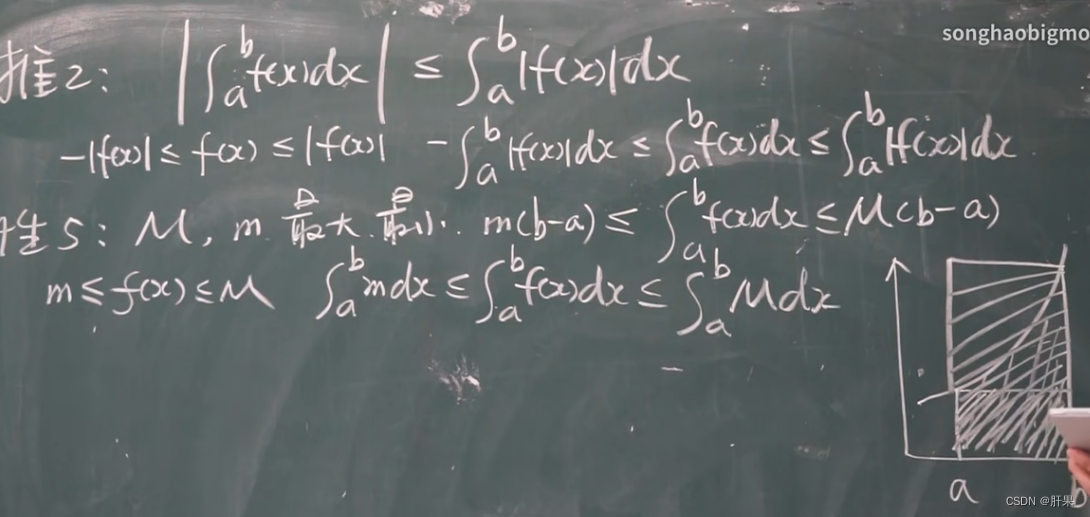 songhaobigmo
推2: |∫_a^b f(x)dx| ≤ ∫_a^b |f(x)|dx
-|f(x)| ≤ f(x) ≤ |f(x)| -∫_a^b |f(x)|dx ≤ ∫_a^b f(x)dx ≤ ∫_a^b |f(x)|dx
性5: M, m 最大 最小. m(b-a) ≤ ∫_a^b f(x)dx ≤ M(b-a)
m ≤ f(x) ≤ M ∫_a^b mdx ≤ ∫_a^b f(x)dx ≤ ∫_a^b Mdx
a b
CSDN @肝果